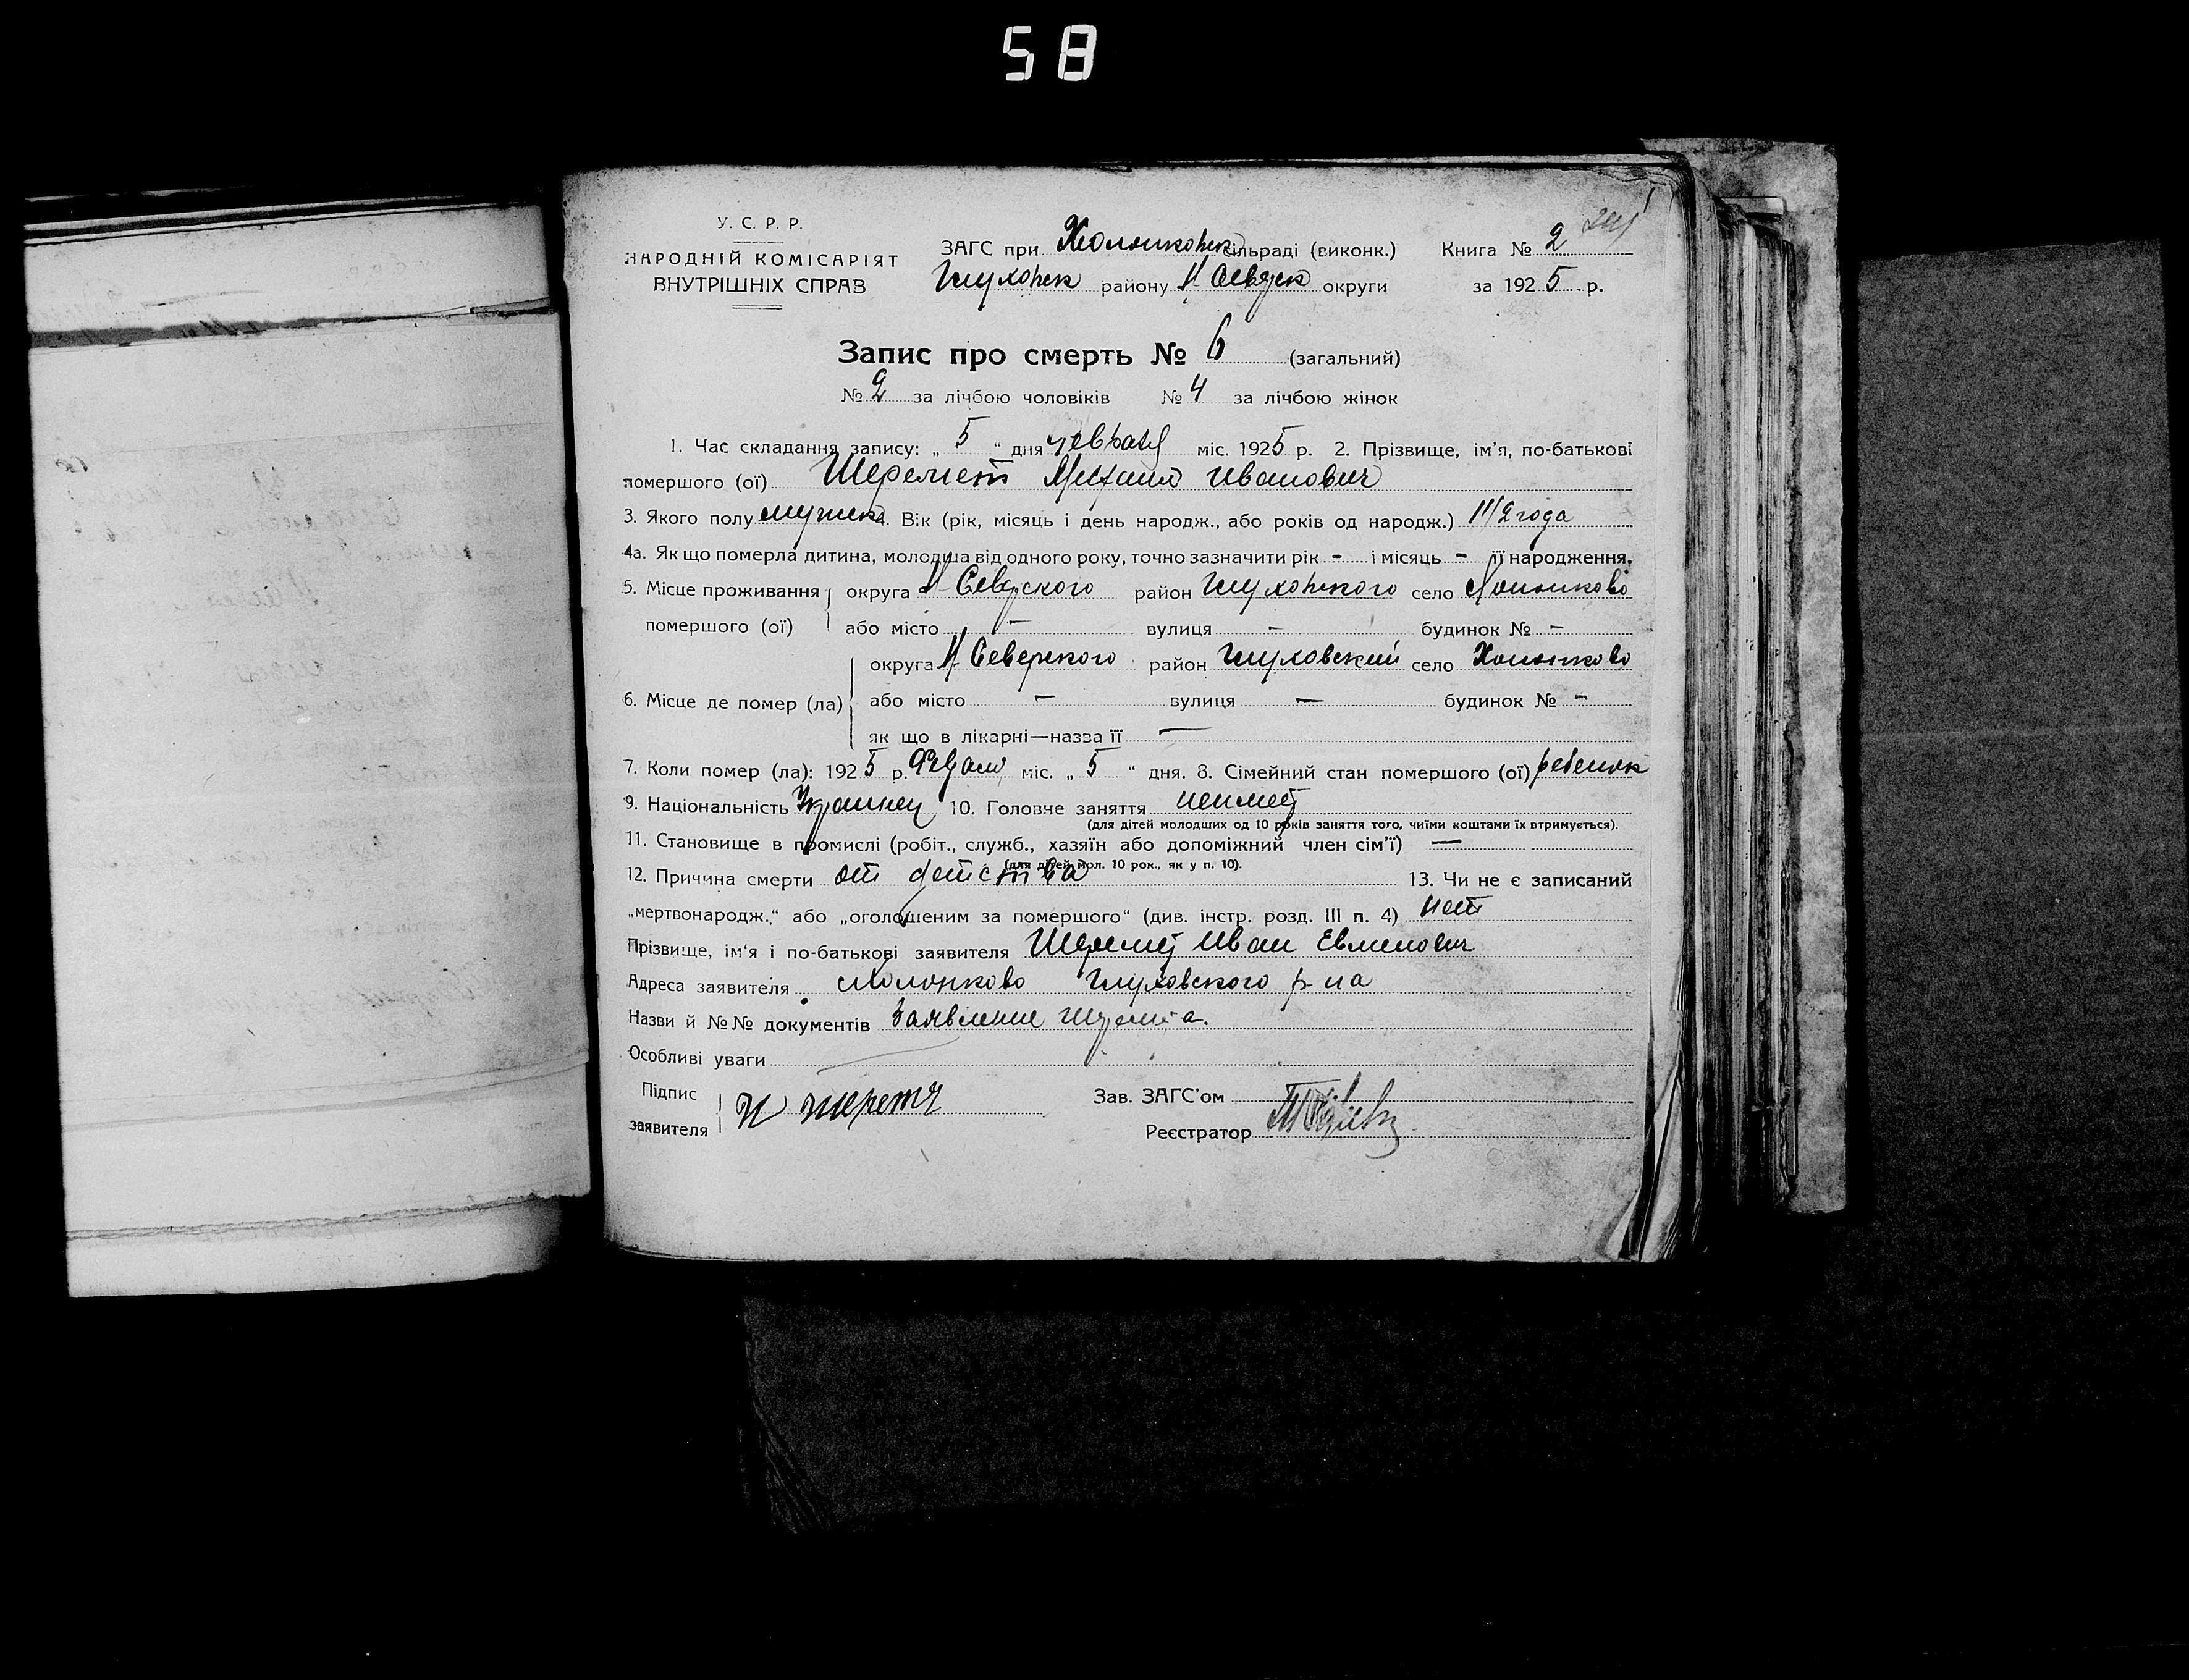 58
У. С. Р. Р.
НАРОДНІЙ КОМІСАРІЯТ
ВНУТРІШНІХ СПРАВ
ЗАГС при сільраді (виконк.)
Глуховск району Н-Северск округи
Книга № 2
за 1925 р.
Запис про смерть № 6 (загальний)
№ 2 за лічбою чоловіків № 4 за лічбою жінок
1. Час складання запису: „ 5 “ дня февраля міс. 1925 р. 2. Прізвище, ім'я, по-батькові
помершого (ої) Шеремет Михаил Иванович
3. Якого полу мужск 4. Вік (рік, місяць і день народж., або років од народж.) 1 1/2 года
4а. Як що померла дитина, молодша від одного року, точно зазначити рік - і місяць - її народження.
5. Місце проживання округа Н-Северского район Глуховского село Холопково
помершого (ої) або місто — вулиця — будинок № —
округа Н-Северского район Глуховский село Холопково
6. Місце де помер (ла) або місто — вулиця — будинок № —
як що в лікарні—назва її —
7. Коли помер (ла): 1925 р. міс. „ 5 “ дня. 8. Сімейний стан помершого (ої) ребенок
9. Національність Украинец 10. Головне заняття
(для дітей молодших од 10 років заняття того, чиїми коштами їх втримується).
11. Становище в промислі (робіт., служб., хазяїн або допоміжний член сім'ї) —
(для дітей мол. 10 рок., як у п. 10).
12. Причина смерти от детства 13. Чи не є записаний
„мертвонародж.“ або „оголошеним за помершого“ (див. інстр. розд. III п. 4) нет
Прізвище, ім'я і по-батькові заявителя Шеремет Иван Евменович
Адреса заявителя с Холопково Глуховского р-на
Назви й №№ документів Заявление Шеремета.
Особливі уваги
Підпис
заявителя И Шеремет
Зав. ЗАГС'ом
Реєстратор